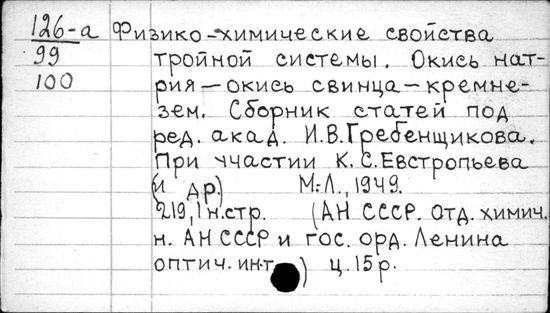 126-а Физико-химические свойства
99 тройной системы. Окись нат-
100 рия — окись свинца — кремне-
зем. Сборник статей под
ред. акад. И.В.Гребенщикова.
При участии К.С.Евстропьева
(и др.) М.-Л., 1949.
219,1 н.стр. (АН СССР. Отд. химич.
н. АН СССР и гос. орд. Ленина
оптич. ин-т ) ц. 15 р.